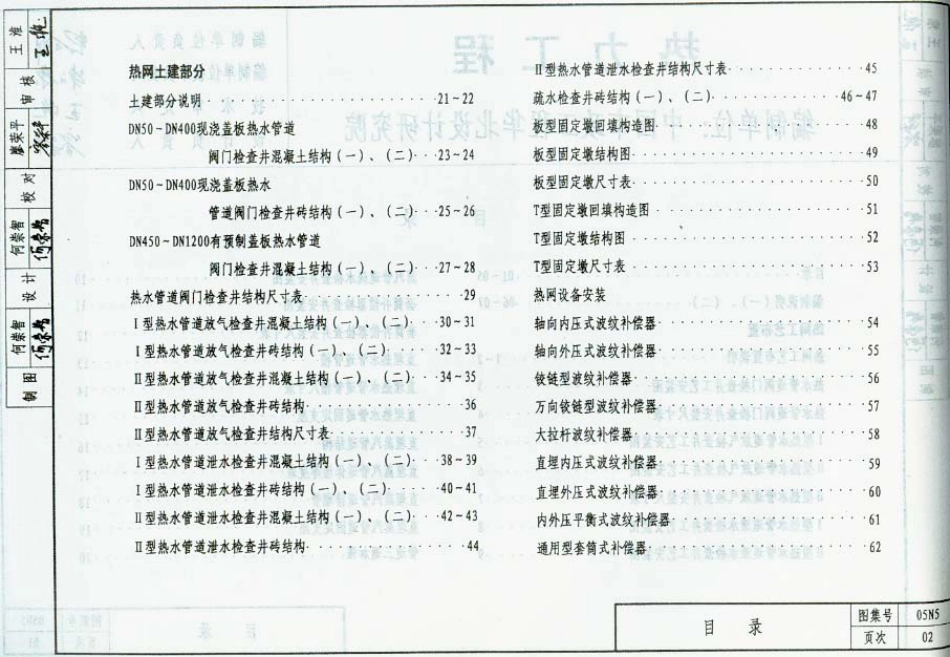 热网土建部分
土建部分说明 21~22
DN50~DN400现浇盖板热水管道
阀门检查井混凝土结构(一)、(二) 23~24
DN50~DN400现浇盖板热水
管道阀门检查井砖结构(一)、(二) 25~26
DN450~DN1200有预制盖板热水管道
阀门检查井混凝土结构(一)、(二) 27~28
热水管道阀门检查井结构尺寸表 29
Ⅰ型热水管道放气检查井混凝土结构(一)、(二) 30~31
Ⅰ型热水管道放气检查井砖结构(一)、(二) 32~33
Ⅱ型热水管道放气检查井混凝土结构(一)、(二) 34~35
Ⅱ型热水管道放气检查井砖结构 36
Ⅱ型热水管道放气检查井结构尺寸表 37
Ⅰ型热水管道泄水检查井混凝土结构(一)、(二) 38~39
Ⅰ型热水管道泄水检查井砖结构(一)、(二) 40~41
Ⅱ型热水管道泄水检查井混凝土结构(一)、(二) 42~43
Ⅱ型热水管道泄水检查井砖结构 44
Ⅱ型热水管道泄水检查井结构尺寸表 45
疏水检查井砖结构(一)、(二) 46~47
板型固定墩回填构造图 48
板型固定墩结构图 49
板型固定墩尺寸表 50
T型固定墩回填构造图 51
T型固定墩结构图 52
T型固定墩尺寸表 53
热网设备安装
轴向内压式波纹补偿器 54
轴向外压式波纹补偿器 55
铰链型波纹补偿器 56
万向铰链型波纹补偿器 57
大拉杆波纹补偿器 58
直埋内压式波纹补偿器 59
直埋外压式波纹补偿器 60
内外压平衡式波纹补偿器 61
通用型套筒式补偿器 62
目 录
图集号 05N5
页次 02
王淮
审核
廖荣平
校对
何崇智
设计
何崇智
制图